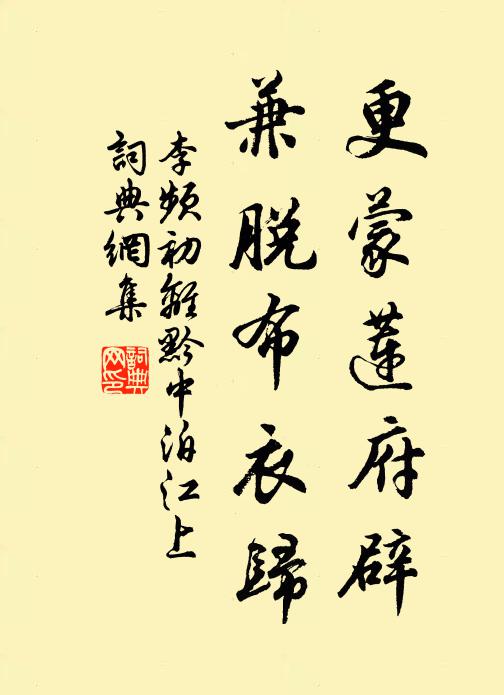 更蒙蓮府辟
兼脱布衣歸
李频初離黔中泊江上
詞典網集
詞典網印